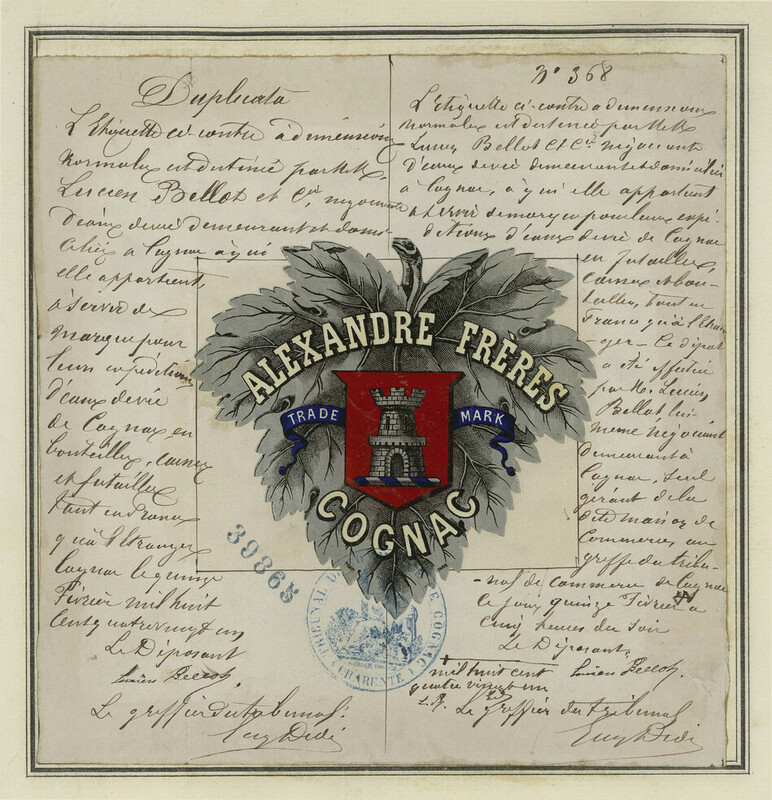 Duplicata
L'Etiquette ci-contre à dimensions
normales est destinée par MM.
Lucien Bellot et Cie, négociants
D'eaux de vie demeurant et domi-
ciliés à Cognac à qui
elle appartient,
à servir de
marque pour
leurs expéditions
D'eaux de vie
de Cognac en
bouteilles, caisses
et futailles
tant en France
qu'à l'Etranger
Cognac le quinze
Février mil huit
cent quatre vingt un
Le Déposant
Lucien Bellot
Le greffier du tribunal.
N° 368
L'Etiquette ci-contre a dimensions
normales est destinée par MM.
Lucien Bellot et Cie négociants
D'eaux de vie demeurant et domiciliés
à Cognac, à qui elle appartient
à servir de marque pour leurs expé-
ditions D'eaux de vie de Cognac
en futailles,
caisses et bou-
teilles, tant en
France qu'à l'Etran-
ger - Ce dépôt
a été effectué
par M. Lucien
Bellot lui-
même négociant
demeurant à
Cognac, seul
gérant de la
dite maison de
Commerce au
greffe du tribu-
-nal de commerce de Cognac
le jour quinze Février a
cinq heures du soir
Le Déposant,
mil huit cent Lucien Bellot
quatre vingt un
Le Greffier du tribunal
ALEXANDRE FRÈRES
TRADE MARK
COGNAC
39865
TRIBUNAL DE COMMERCE DE COGNAC
CHARENTE